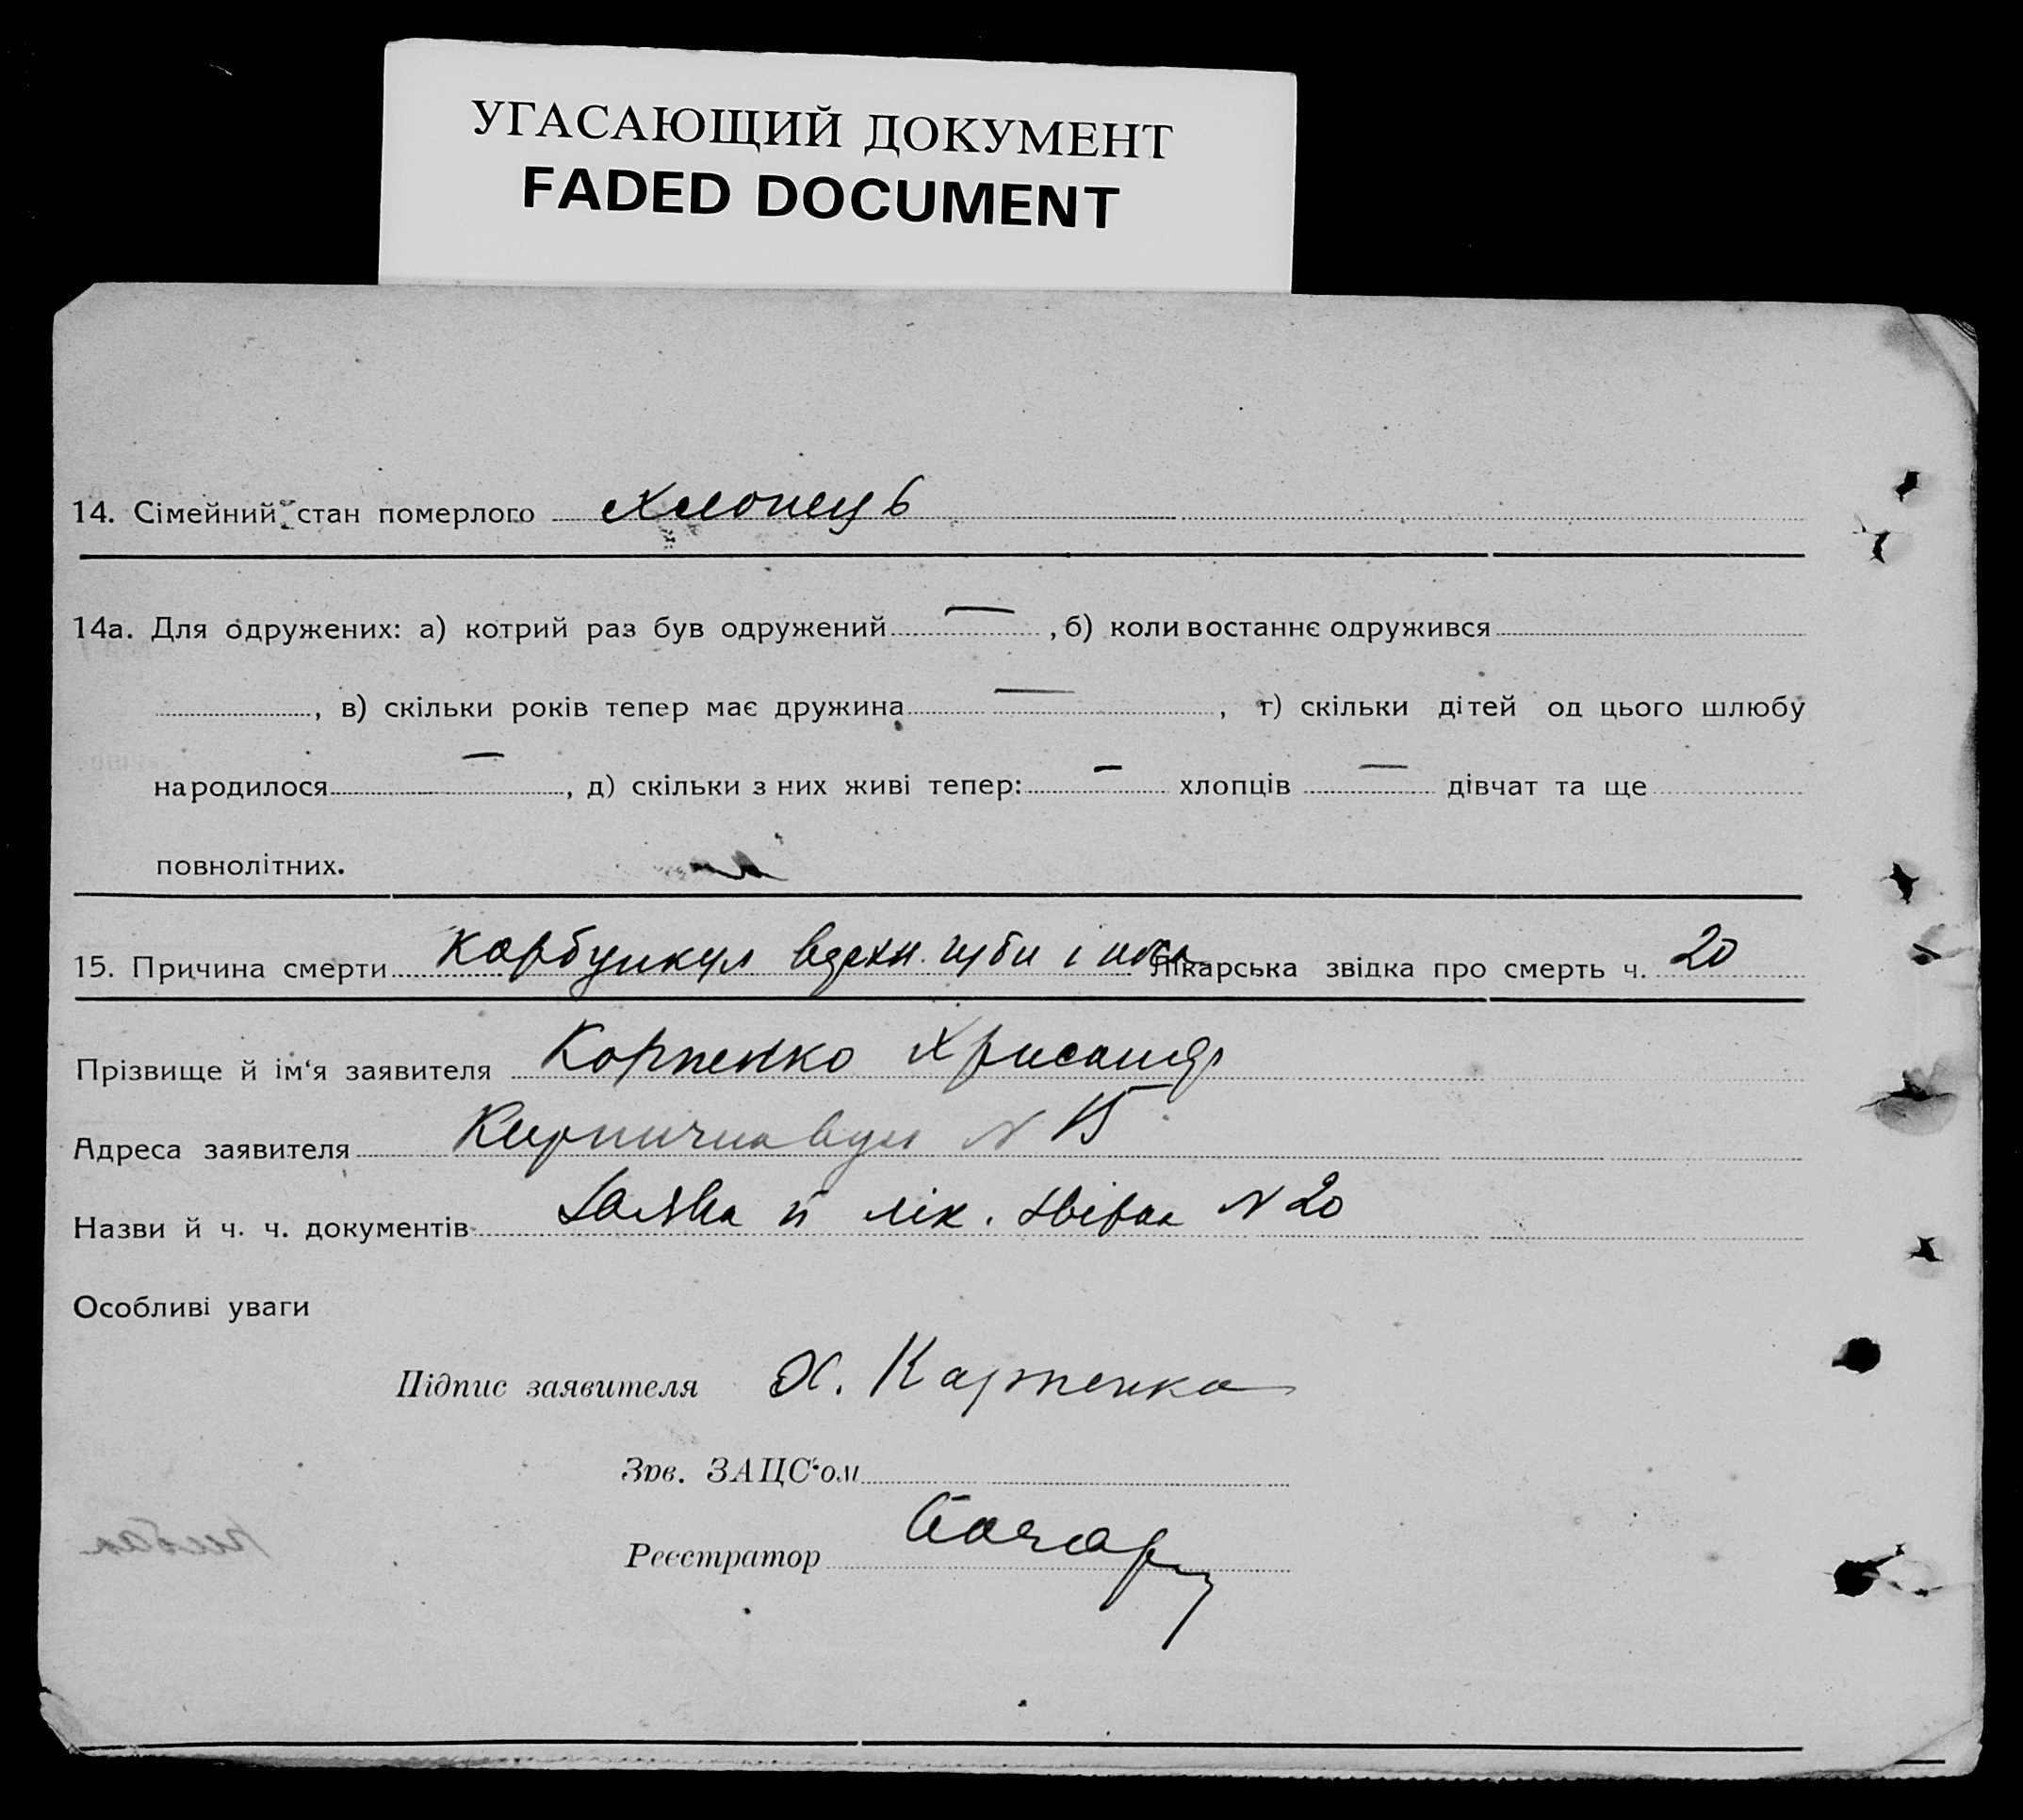 УГАСАЮЩИЙ ДОКУМЕНТ
FADED DOCUMENT
14. Сімейний стан померлого Хлопець
14а. Для одружених: а) котрий раз був одружений — , б) коли востаннє одружився
, в) скільки років тепер має дружина — , г) скільки дітей од цього шлюбу
народилося — , д) скільки з них живі тепер: — хлопців — дівчат та ще
повнолітних.
15. Причина смерти Карбункул верхн. губи і носа Лікарська звідка про смерть ч. 20
Прізвище й ім'я заявителя Корпенко Хрисанф
Адреса заявителя Кирпична вул N 15
Назви й ч. ч. документів Заява й лік. звідка N 20
Особливі уваги
Підпис заявителя Х. Карпенко
Зав. ЗАЦС'ом
Реєстратор